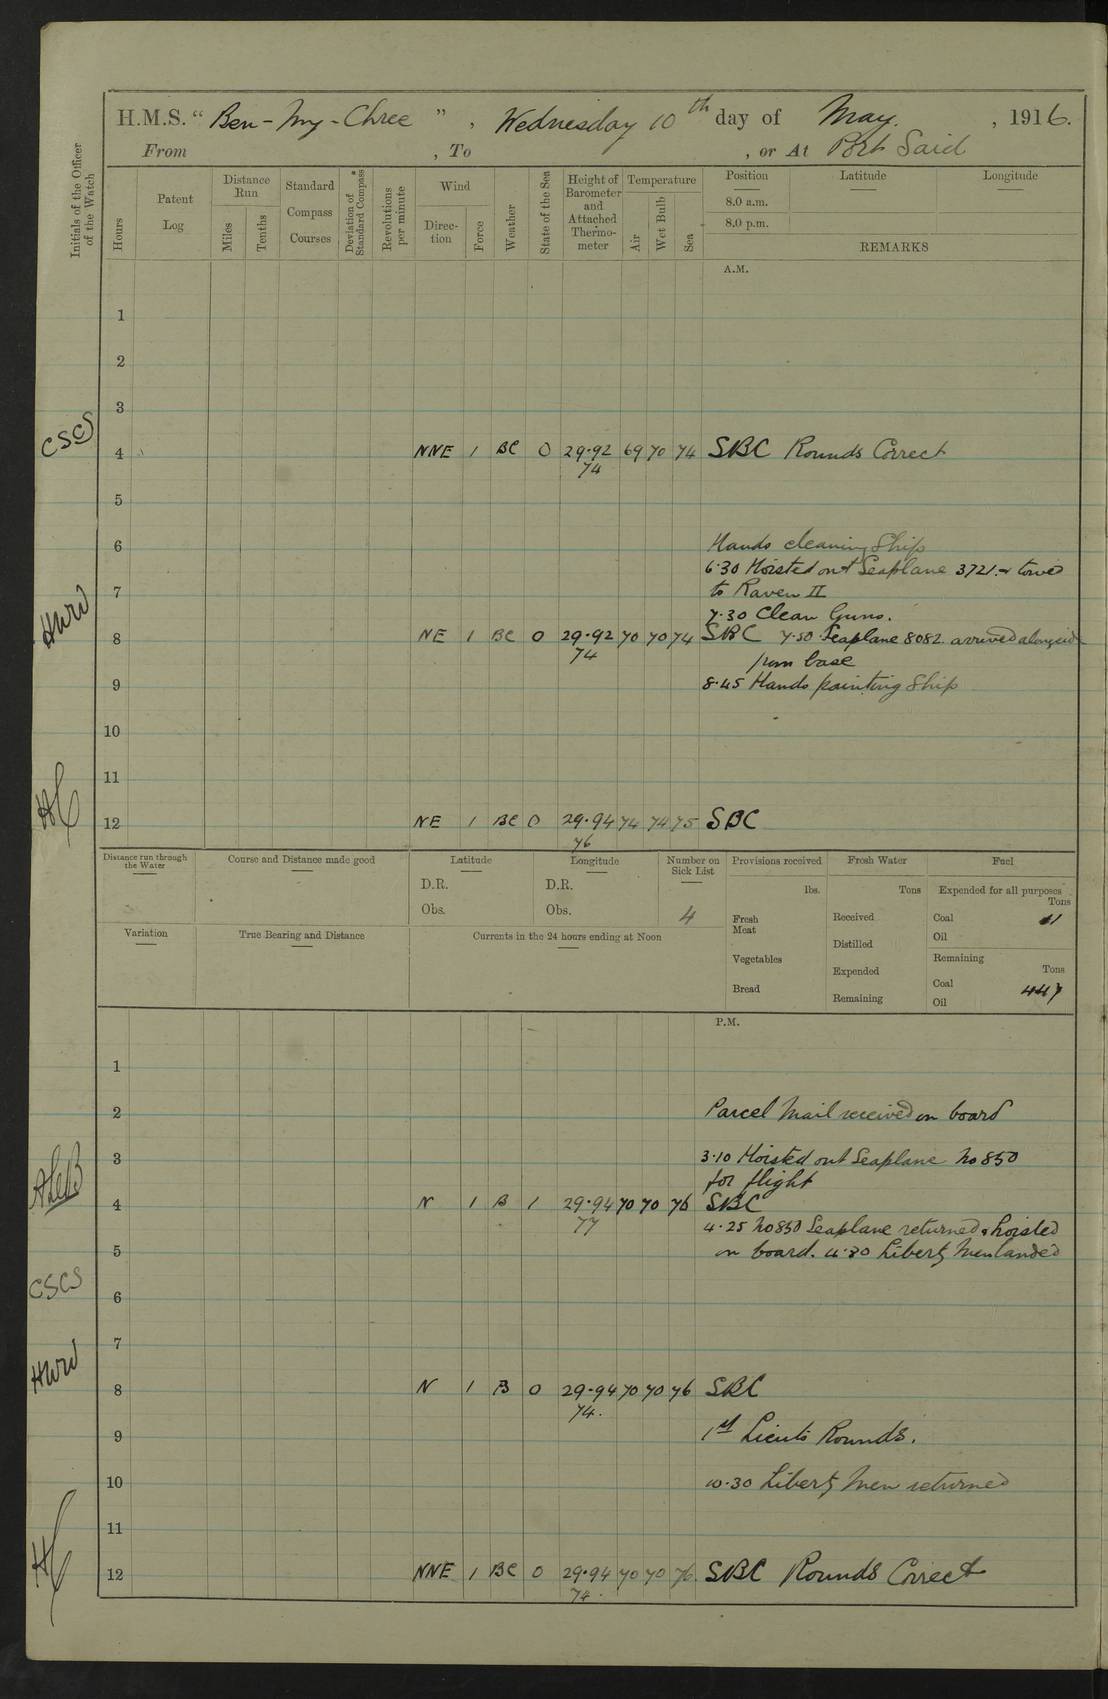 H.M.S. “ Ben-my-Chree ” , Wednesday 10th day of May. , 1916.
From , To , or At Port Said
Initials of the Officer of the Watch
Hours
Patent Log
Distance Run
Miles
Tenths
Standard Compass Courses
Deviation of Standard Compass*
Revolutions per minute
Wind
Direc-tion
Force
Weather
State of the Sea
Height of Barometer and Attached Thermo-meter
Temperature
Air
Wet Bulb
Sea
Position Latitude Longitude
8.0 a.m.
8.0 p.m.
REMARKS
A.M.
1
2
3
CSCS
4 NNE 1 BC 0 29.92 69 70 74 SBC Rounds Correct
74
5
6 Hands cleaning Ship
6.30 Hoisted out Seaplane 3721. & towed
7 to Raven II
7.30 Clean Guns.
HWW
8 NE 1 BC 0 29.92 70 70 74 SBC 7.50 Seaplane 8082 arrived alongside
74 from base
9 8.45 Hands painting Ship
10
11
12 NE 1 BC 0 29.94 74 74 75 SBC
76
Distance run through the Water
Course and Distance made good
Latitude
D.R.
Obs.
Longitude
D.R.
Obs.
Number on Sick List
4
Provisions received
lbs.
Fresh Meat
Vegetables
Bread
Fresh Water
Tons
Received
Distilled
Expended
Remaining
Fuel
Expended for all purposes
Tons
Coal 11
Oil
Remaining
Tons
Coal 447
Oil
Variation
True Bearing and Distance
Currents in the 24 hours ending at Noon
P.M.
1
2 Parcel Mail received on board
3 3.10 Hoisted out Seaplane No 850
for flight
4 N 1 B 1 29.94 70 70 76 SBC
77 4.25 No 850 Seaplane returned & hoisted
5 on board. 4.30 Liberty Men landed
CSCS
6
7
HWW
8 N 1 B 0 29.94 70 70 76 SBC
74.
9 1st Lieuts Rounds.
10 10.30 Liberty Men returned
11
12 NNE 1 BC 0 29.94 70 70 76 SBC Rounds Correct
74.